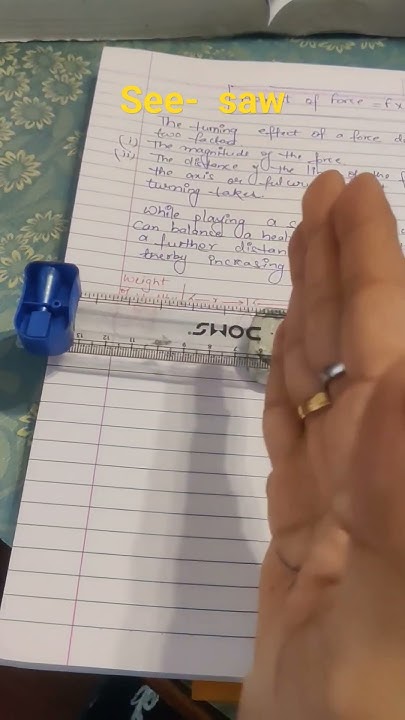 See- saw
of force = f x
The turning effect of a force d
two factors
(i) The magnitude of the force
(ii) The distance of the li of the f
the axis or
turning taker
While playing a
can balance a
a further distan
therby increasing
weight
DOMS